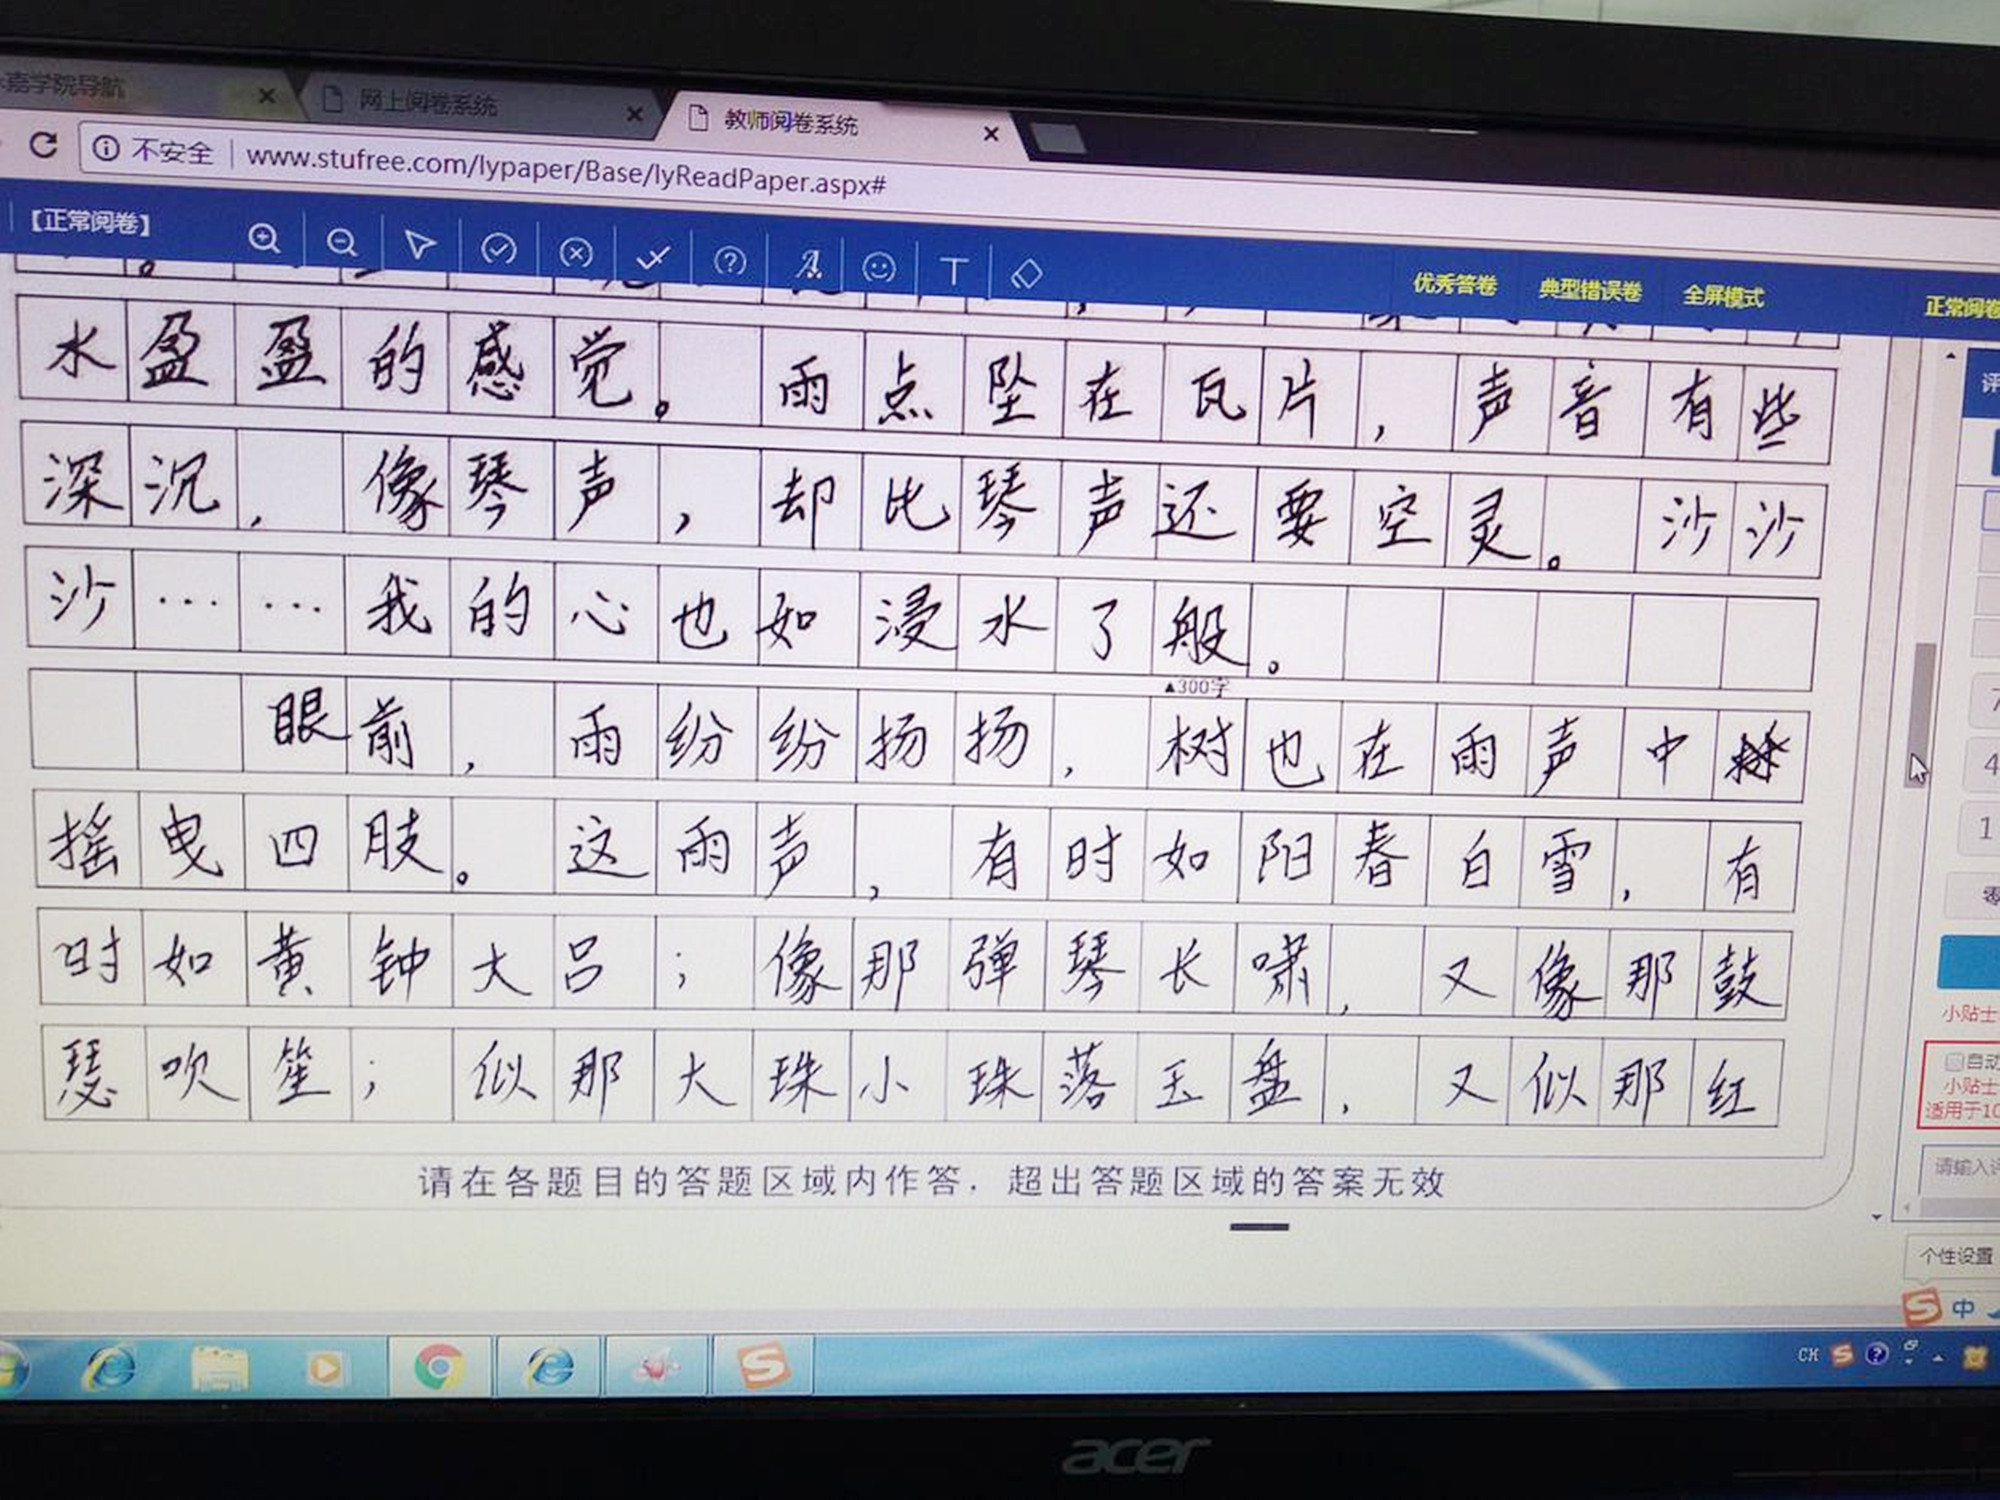 嘉学院导航 网上阅卷系统 教师阅卷系统
不安全 www.stufree.com/lypaper/Base/lyReadPaper.aspx#
【正常阅卷】 T 优秀答卷 典型错误卷 全屏模式 正常阅卷
水盈盈的感觉。雨点坠在瓦片，声音有些
深沉，像琴声，却比琴声还要空灵。沙沙
沙……我的心也如浸水了般。
▲300字
眼前，雨纷纷扬扬，树也在雨声中
摇曳四肢。这雨声，有时如阳春白雪，有
时如黄钟大吕；像那弹琴长啸，又像那鼓
瑟吹笙；似那大珠小珠落玉盘，又似那红
请在各题目的答题区域内作答，超出答题区域的答案无效
评
7
4
1
零
小贴士
自动
小贴士
适用于10
请输入
个性设置
S 中
CH
acer